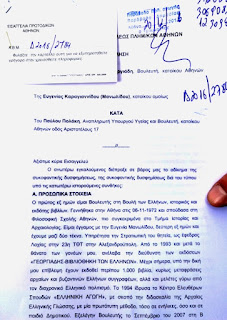 ΕΙΣΑΓΓΕΛΙΑ ΠΡΩΤΟΔΙΚΩΝ
ΑΘΗΝΩΝ
Β2016/2784
ΠΛΗΜ/ΚΩΝ ΑΘΗΝΩΝ
Β2016/278
Βουλευτή, κατοίκου Αθηνών
Της Ευγενίας Καραγιαννίδου (Μανωλίδου), κατοίκου ομοίως
ΚΑΤΑ
Του Παύλου Πολάκη, Αναπληρωτή Υπουργού Υγείας και Βουλευτή, κατοίκου
Αθηνών οδός Αριστοτέλους 17
Αξιότιμε κύριε Εισαγγελέα
Ο ανωτέρω εγκαλούμενος διέπραξε σε βάρος μας τα αδικήματα της
συκοφαντικής δυσφημήσεως, της συκοφαντικής δυσφημήσεως δια του τύπου
υπό τις κατωτέρω ιστορούμενες συνθήκες:
Α. ΠΡΟΣΩΠΙΚΑ ΣΤΟΙΧΕΙΑ
Ο πρώτος εξ ημών είμαι Βουλευτής στη Βουλή των Ελλήνων, ιστορικός και
εκδότης βιβλίων. Γεννήθηκα στην Αθήνα στις 06-11-1972 και σπούδασα στη
Φιλοσοφική Σχολή Αθηνών, πιο συγκεκριμένα στο Τμήμα Ιστορίας και
Αρχαιολογίας. Είμαι έγγαμος με την Ευγενία Μανωλίδου, δεύτερη εξ ημών και
έχουμε μαζί δύο τέκνα. Υπηρέτησα την Στρατιωτική του θητεία, ως έφεδρος
Λοχίας στην 23η ΤΘΤ στην Αλεξανδρούπολη. Από το 1993 και μετά το
θάνατο των γονιών μου, ανέλαβα την διεύθυνση των εκδόσεων
«ΓΕΩΡΓΙΑΔΗΣ-ΒΙΒΛΙΟΘΗΚΗ ΤΩΝ ΕΛΛΗΝΩΝ». Μέχρι σήμερα, υπό την δική
μου επίβλεψη έχουν εκδοθεί περίπου 1.000 βιβλία, κυρίως μεταφράσεις
αρχαίων και βυζαντινών Ελλήνων συγγραφέων, αλλά και μελέτες γύρω από
τον διαχρονικό Ελληνικό πολιτισμό. Το 1994 ίδρυσα το Κέντρο Ελευθέρων
Σπουδών «ΕΛΛΗΝΙΚΗ ΑΓΩΓΗ», με σκοπό την διδασκαλία της Αρχαίας
Ελληνικής Γλώσσης, με μία πρωτότυπη μέθοδο, τόσο σε ενήλικες, όσο και σε
παιδιά Δημοτικού. Εξελέγην Βουλευτής το Σεπτέμβριο του 2007 στη Β